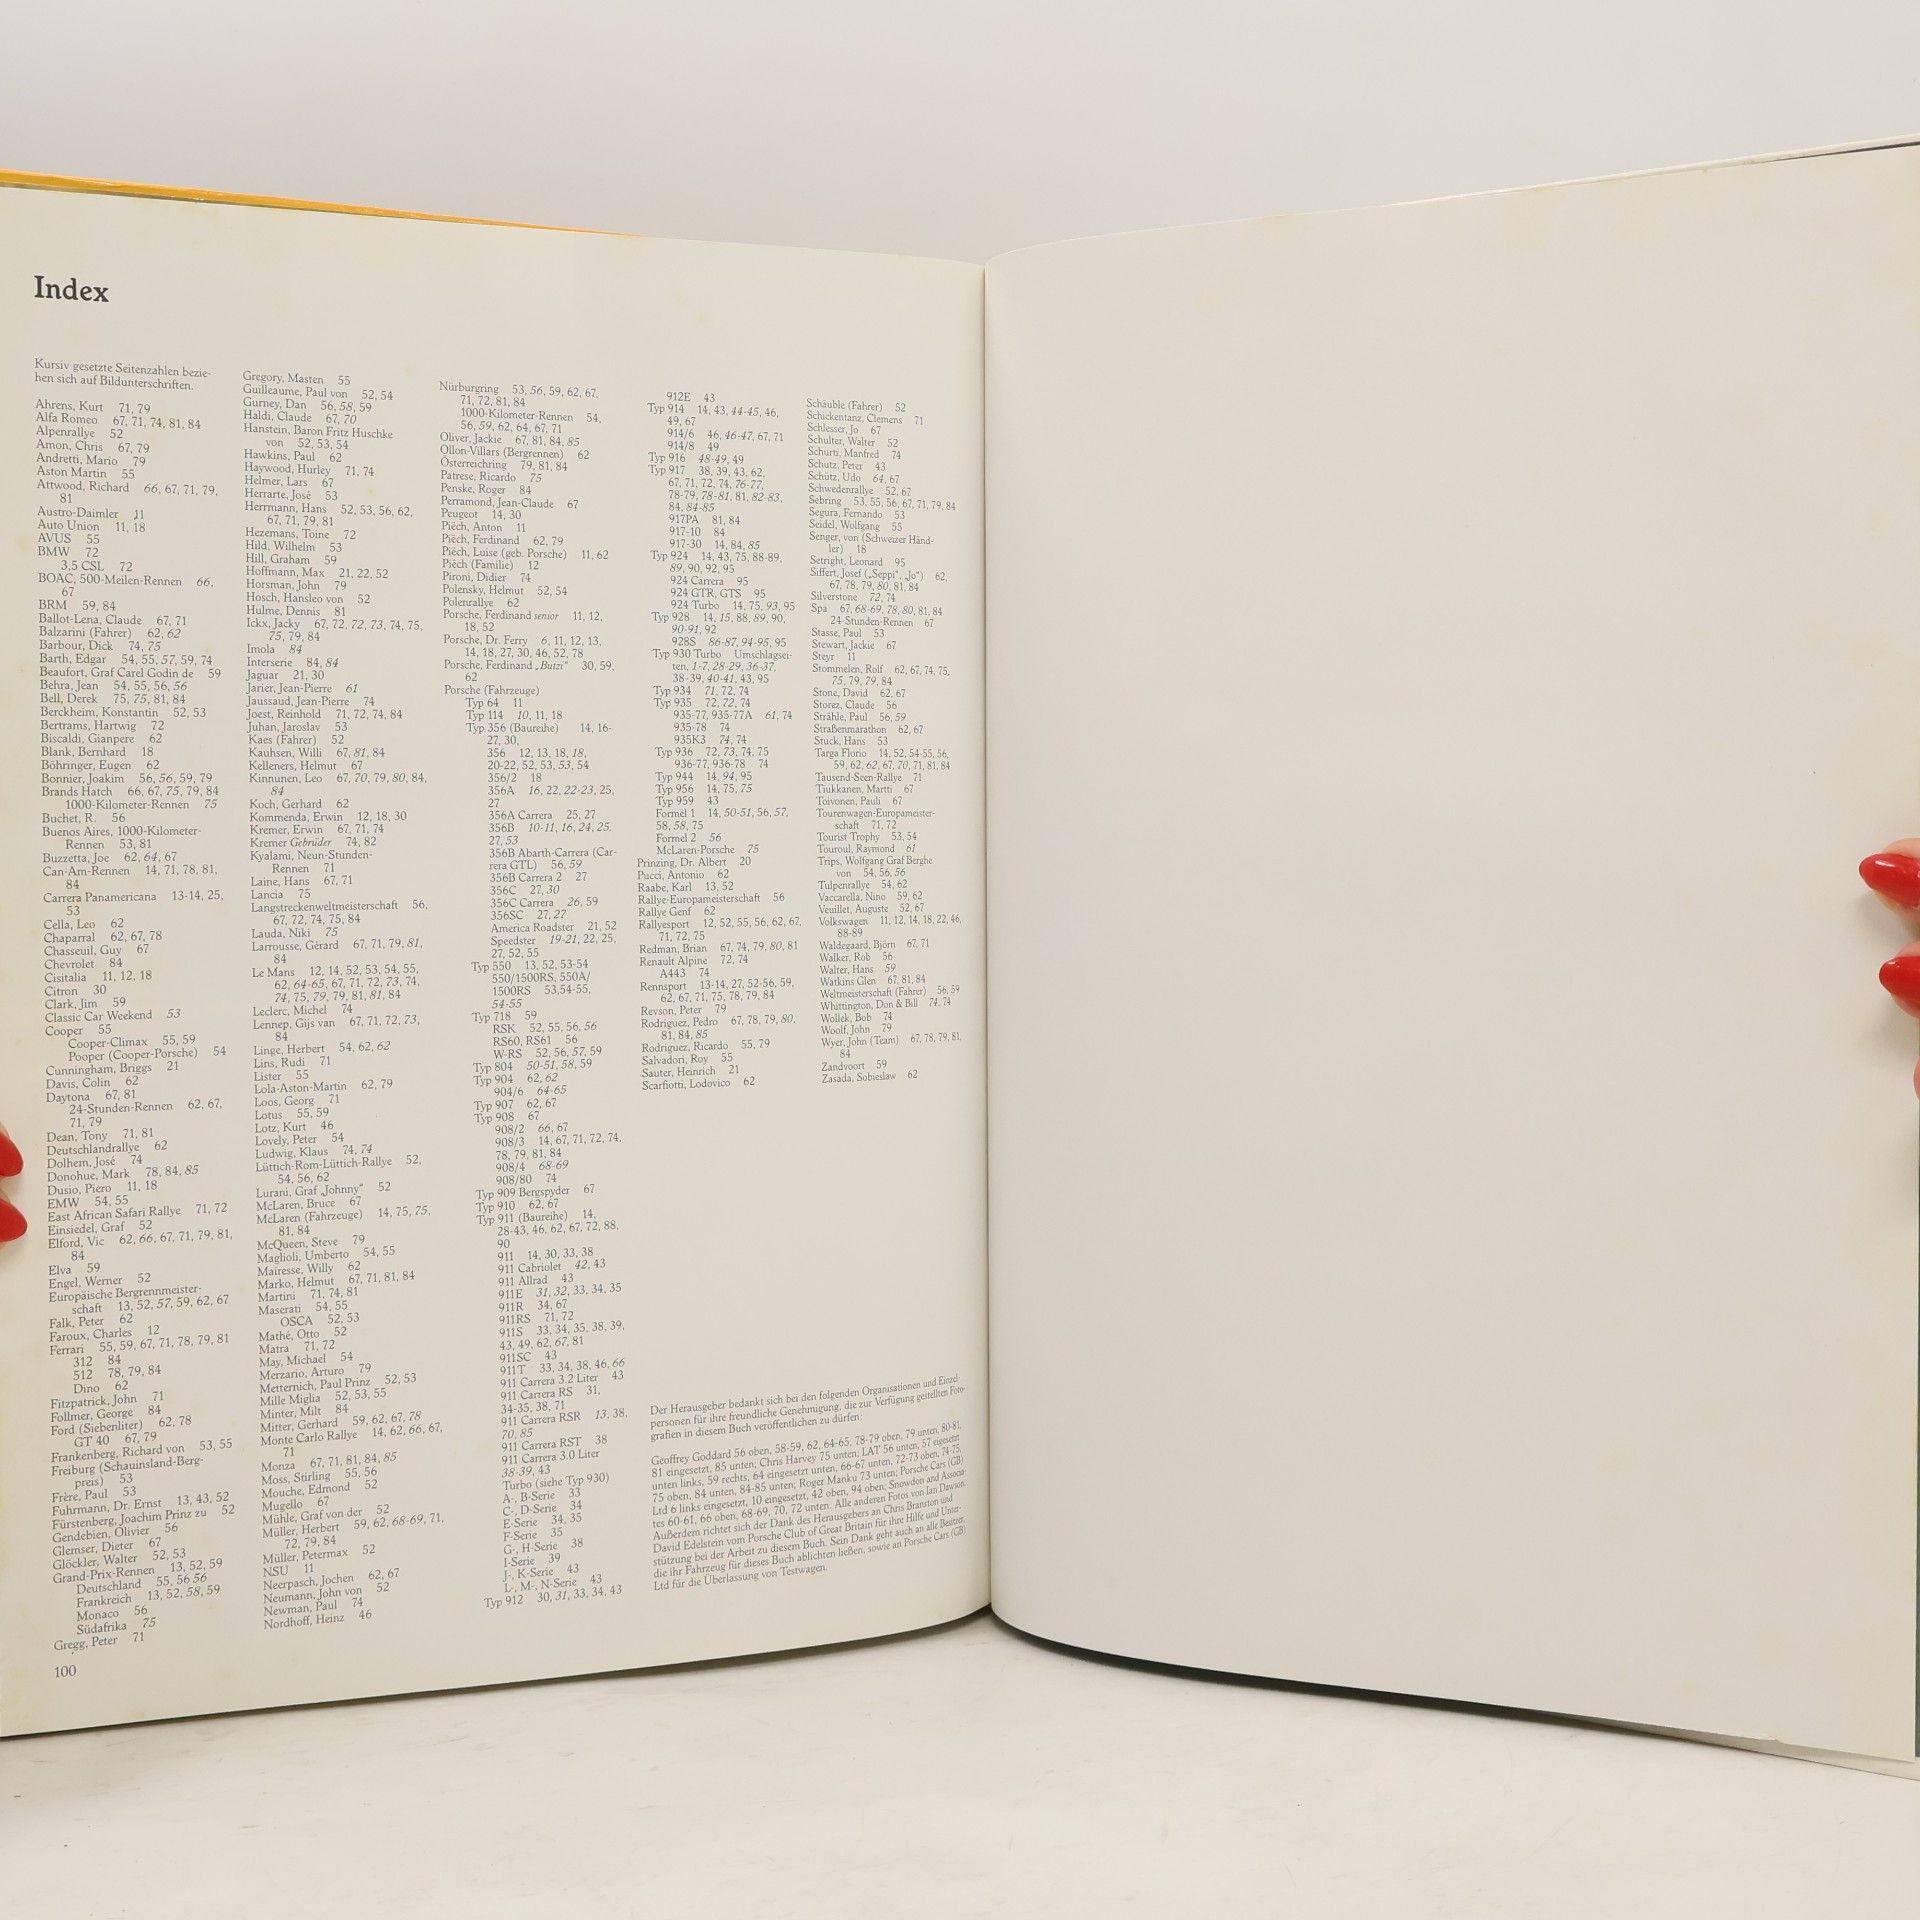 Index
Kursiv gesetzte Seitenzahlen bezie-
hen sich auf Bildunterschriften.
Ahrens, Kurt 71, 79
Alfa Romeo 67, 71, 74, 81, 84
Alpenrallye 52
Amon, Chris 67, 79
Andretti, Mario 79
Aston Martin 55
Attwood, Richard 66, 67, 71, 79,
81
Austro-Daimler 11
Auto Union 11, 18
AVUS 55
BMW 72
3,5 CSL 72
BOAC, 500-Meilen-Rennen 66,
67
BRM 59, 84
Ballot-Lena, Claude 67, 71
Balzarini (Fahrer) 62, 62
Barbour, Dick 74, 75
Barth, Edgar 54, 55, 57, 59, 74
Beaufort, Graf Carel Godin de 59
Behra, Jean 54, 55, 56, 56
Bell, Derek 75, 75, 81, 84
Berckheim, Konstantin 52, 53
Bertrams, Hartwig 72
Biscaldi, Gianpere 62
Blank, Bernhard 18
Böhringer, Eugen 62
Bonnier, Joakim 56, 56, 59, 79
Brands Hatch 66, 67, 75, 79, 84
1000-Kilometer-Rennen 75
Buchet, R. 56
Buenos Aires, 1000-Kilometer-
Rennen 53, 81
Buzzetta, Joe 62, 64, 67
Can-Am-Rennen 14, 71, 78, 81,
84
Carrera Panamericana 13-14, 25,
53
Cella, Leo 62
Chaparral 62, 67, 78
Chasseuil, Guy 67
Chevrolet 84
Cisitalia 11, 12, 18
Citron 30
Clark, Jim 59
Classic Car Weekend 53
Cooper 55
Cooper-Climax 55, 59
Pooper (Cooper-Porsche) 54
Cunningham, Briggs 21
Davis, Colin 62
Daytona 67, 81
24-Stunden-Rennen 62, 67,
71, 79
Dean, Tony 71, 81
Deutschlandrallye 62
Dolhem, José 74
Donohue, Mark 78, 84, 85
Dusio, Piero 11, 18
EMW 54, 55
East African Safari Rallye 71, 72
Einsiedel, Graf 52
Elford, Vic 62, 66, 67, 71, 79, 81,
84
Elva 59
Engel, Werner 52
Europäische Bergrennmeister-
schaft 13, 52, 57, 59, 62, 67
Falk, Peter 62
Faroux, Charles 12
Ferrari 55, 59, 67, 71, 78, 79, 81
312 84
512 78, 79, 84
Dino 62
Fitzpatrick, John 71
Follmer, George 84
Ford (Siebenliter) 62, 78
GT 40 67, 79
Frankenberg, Richard von 53, 55
Freiburg (Schauinsland-Berg-
preis) 53
Frère, Paul 53
Fuhrmann, Dr. Ernst 13, 43, 52
Fürstenberg, Joachim Prinz zu 52
Gendebien, Olivier 56
Glemser, Dieter 67
Glöckler, Walter 52, 53
Grand-Prix-Rennen 13, 52, 59
Deutschland 55, 56 56
Frankreich 13, 52, 58, 59
Monaco 56
Südafrika 75
Gregg, Peter 71
100
Gregory, Masten 55
Guilleaume, Paul von 52, 54
Gurney, Dan 56, 58, 59
Haldi, Claude 67, 70
Hanstein, Baron Fritz Huschke
von 52, 53, 54
Hawkins, Paul 62
Haywood, Hurley 71, 74
Helmer, Lars 67
Herrarte, José 53
Herrmann, Hans 52, 53, 56, 62,
67, 71, 79, 81
Hezemans, Toine 72
Hild, Wilhelm 53
Hill, Graham 59
Hoffmann, Max 21, 22, 52
Horsman, John 79
Hosch, Hansleo von 52
Hulme, Dennis 81
Ickx, Jacky 67, 72, 72, 73, 74, 75,
75, 79, 84
Imola 84
Interserie 84, 84
Jaguar 21, 30
Jarier, Jean-Pierre 61
Jaussaud, Jean-Pierre 74
Joest, Reinhold 71, 72, 74, 84
Juhan, Jaroslav 53
Kaes (Fahrer) 52
Kauhsen, Willi 67, 81, 84
Kelleners, Helmut 67
Kinnunen, Leo 67, 70, 79, 80, 84,
84
Koch, Gerhard 62
Kommenda, Erwin 12, 18, 30
Kremer, Erwin 67, 71, 74
Kremer Gebrüder 74, 82
Kyalami, Neun-Stunden-
Rennen 71
Laine, Hans 67, 71
Lancia 75
Langstreckenweltmeisterschaft 56,
67, 72, 74, 75, 84
Lauda, Niki 75
Larrousse, Gérard 67, 71, 79, 81,
84
Le Mans 12, 14, 52, 53, 54, 55,
62, 64-65, 67, 71, 72, 73, 74,
74, 75, 79, 79, 81, 81, 84
Leclerc, Michel 74
Lennep, Gijs van 67, 71, 72, 73,
84
Linge, Herbert 54, 62, 62
Lins, Rudi 71
Lister 55
Lola-Aston-Martin 62, 79
Loos, Georg 71
Lotus 55, 59
Lotz, Kurt 46
Lovely, Peter 54
Ludwig, Klaus 74, 74
Lüttich-Rom-Lüttich-Rallye 52,
54, 56, 62
Lurani, Graf „Johnny“ 52
McLaren, Bruce 67
McLaren (Fahrzeuge) 14, 75, 75,
81, 84
McQueen, Steve 79
Maglioli, Umberto 54, 55
Mairesse, Willy 62
Marko, Helmut 67, 71, 81, 84
Martini 71, 74, 81
Maserati 54, 55
OSCA 52, 53
Mathé, Otto 52
Matra 71, 72
May, Michael 54
Merzario, Arturo 79
Metternich, Paul Prinz 52, 53
Mille Miglia 52, 53, 55
Minter, Milt 84
Mitter, Gerhard 59, 62, 67, 78
Monte Carlo Rallye 14, 62, 66, 67,
71
Monza 67, 71, 81, 84, 85
Moss, Stirling 55, 56
Mouche, Edmond 52
Mugello 67
Mühle, Graf von der 52
Müller, Herbert 59, 62, 68-69, 71,
72, 79, 84
Müller, Petermax 52
NSU 11
Neerpasch, Jochen 62, 67
Neumann, John von 52
Newman, Paul 74
Nordhoff, Heinz 46
Nürburgring 53, 56, 59, 62, 67,
71, 72, 81, 84
1000-Kilometer-Rennen 54,
56, 59, 62, 64, 67, 71
Oliver, Jackie 67, 81, 84, 85
Ollon-Villars (Bergrennen) 62
Österreichring 79, 81, 84
Patrese, Ricardo 75
Penske, Roger 84
Perramond, Jean-Claude 67
Peugeot 14, 30
Piëch, Anton 11
Piëch, Ferdinand 62, 79
Piëch, Luise (geb. Porsche) 11, 62
Piëch (Familie) 12
Pironi, Didier 74
Polensky, Helmut 52, 54
Polenrallye 62
Porsche, Ferdinand senior 11, 12,
18, 52
Porsche, Dr. Ferry 6, 11, 12, 13,
14, 18, 27, 30, 46, 52, 78
Porsche, Ferdinand „Butzi“ 30, 59,
62
Porsche (Fahrzeuge)
Typ 64 11
Typ 114 10, 11, 18
Typ 356 (Baureihe) 14, 16-
27, 30,
356 12, 13, 18, 18,
20-22, 52, 53, 53, 54
356/2 18
356A 16, 22, 22-23, 25,
27
356A Carrera 25, 27
356B 10-11, 16, 24, 25,
27, 53
356B Abarth-Carrera (Car-
rera GTL) 56, 59
356B Carrera 2 27
356C 27, 30
356C Carrera 26, 59
356SC 27, 27
America Roadster 21, 52
Speedster 19-21, 22, 25,
27, 52, 55
Typ 550 13, 52, 53-54
550/1500RS, 550A/
1500RS 53,54-55,
54-55
Typ 718 59
RSK 52, 55, 56, 56
RS60, RS61 56
W-RS 52, 56, 57, 59
Typ 804 50-51, 58, 59
Typ 904 62, 62
904/6 64-65
Typ 907 62, 67
Typ 908 67
908/2 66, 67
908/3 14, 67, 71, 72, 74,
78, 79, 81, 84
908/4 68-69
908/80 74
Typ 909 Bergspyder 67
Typ 910 62, 67
Typ 911 (Baureihe) 14,
28-43, 46, 62, 67, 72, 88,
90
911 14, 30, 33, 38
911 Cabriolet 42, 43
911 Allrad 43
911E 31, 32, 33, 34, 35
911R 34, 67
911RS 71, 72
911S 33, 34, 35, 38, 39,
43, 49, 62, 67, 81
911SC 43
911T 33, 34, 38, 46, 66
911 Carrera 3.2 Liter 43
911 Carrera RS 31,
34-35, 38, 71
911 Carrera RSR 13, 38,
70, 85
911 Carrera RST 38
911 Carrera 3.0 Liter
38-39, 43
Turbo (siehe Typ 930)
A-, B-Serie 33
C-, D-Serie 34
E-Serie 34, 35
F-Serie 35
G-, H-Serie 38
I-Serie 39
J-, K-Serie 43
L-, M-, N-Serie 43
Typ 912 30, 31, 33, 34, 43
912E 43
Typ 914 14, 43, 44-45, 46,
49, 67
914/6 46, 46-47, 67, 71
914/8 49
Typ 916 48-49, 49
Typ 917 38, 39, 43, 62,
67, 71, 72, 74, 76-77,
78-79, 78-81, 81, 82-83,
84, 84-85
917PA 81, 84
917-10 84
917-30 14, 84, 85
Typ 924 14, 43, 75, 88-89,
89, 90, 92, 95
924 Carrera 95
924 GTR, GTS 95
924 Turbo 14, 75, 93, 95
Typ 928 14, 15, 88, 89, 90,
90-91, 92
928S 86-87, 94-95, 95
Typ 930 Turbo Umschlagsei-
ten, 1-7, 28-29, 36-37,
38-39, 40-41, 43, 95
Typ 934 71, 72, 74
Typ 935 72, 72, 74
935-77, 935-77A 61, 74
935-78 74
935K3 74, 74
Typ 936 72, 73, 74, 75
936-77, 936-78 74
Typ 944 14, 94, 95
Typ 956 14, 75, 75
Typ 959 43
Formel 1 14, 50-51, 56, 57,
58, 58, 75
Formel 2 56
McLaren-Porsche 75
Prinzing, Dr. Albert 20
Pucci, Antonio 62
Raabe, Karl 13, 52
Rallye-Europameisterschaft 56
Rallye Genf 62
Rallyesport 12, 52, 55, 56, 62, 67,
71, 72, 75
Redman, Brian 67, 74, 79, 80, 81
Renault Alpine 72, 74
A443 74
Rennsport 13-14, 27, 52-56, 59,
62, 67, 71, 75, 78, 79, 84
Revson, Peter 79
Rodriguez, Pedro 67, 78, 79, 80,
81, 84, 85
Rodriguez, Ricardo 55, 79
Salvadori, Roy 55
Sauter, Heinrich 21
Scarfiotti, Lodovico 62
Schäuble (Fahrer) 52
Schickentanz, Clemens 71
Schlesser, Jo 67
Schulter, Walter 52
Schurti, Manfred 74
Schutz, Peter 43
Schütz, Udo 64, 67
Schwedenrallye 52, 67
Sebring 53, 55, 56, 67, 71, 79, 84
Segura, Fernando 53
Seidel, Wolfgang 55
Senger, von (Schweizer Händ-
ler) 18
Setright, Leonard 95
Siffert, Josef („Seppi“, „Jo“) 62,
67, 78, 79, 80, 81, 84
Silverstone 72, 74
Spa 67, 68-69, 78, 80, 81, 84
24-Stunden-Rennen 67
Stasse, Paul 53
Stewart, Jackie 67
Steyr 11
Stommelen, Rolf 62, 67, 74, 75,
75, 79, 79, 84
Stone, David 62, 67
Storez, Claude 56
Strähle, Paul 56, 59
Straßenmarathon 62, 67
Stuck, Hans 53
Targa Florio 14, 52, 54-55, 56,
59, 62, 62, 67, 70, 71, 81, 84
Tausend-Seen-Rallye 71
Tiukkanen, Martti 67
Toivonen, Pauli 67
Tourenwagen-Europameister-
schaft 71, 72
Tourist Trophy 53, 54
Touroul, Raymond 61
Trips, Wolfgang Graf Berghe
von 54, 56, 56
Tulpenrallye 54, 62
Vaccarella, Nino 59, 62
Veuillet, Auguste 52, 67
Volkswagen 11, 12, 14, 18, 22, 46,
88-89
Waldegaard, Björn 67, 71
Walker, Rob 56
Walter, Hans 59
Watkins Glen 67, 81, 84
Weltmeisterschaft (Fahrer) 56, 59
Whittington, Don & Bill 74, 74
Wollek, Bob 74
Woolf, John 79
Wyer, John (Team) 67, 78, 79, 81,
84
Zandvoort 59
Zasada, Sobieslaw 62
Der Herausgeber bedankt sich bei den folgenden Organisationen und Einzel-
personen für ihre freundliche Genehmigung, die zur Verfügung gestellten Foto-
grafien in diesem Buch veröffentlichen zu dürfen:
Geoffrey Goddard 56 oben, 58-59, 62, 64-65, 78-79 oben, 79 unten, 80-81,
81 eingesetzt, 85 unten; Chris Harvey 75 unten; LAT 56 unten, 57 eigesetzt
unten links, 59 rechts, 64 eingesetzt unten, 66-67 unten, 72-73 oben, 74-75,
75 oben, 84 unten, 84-85 unten; Roger Manku 73 unten; Porsche Cars (GB)
Ltd 6 links eingesetzt, 10 eingesetzt, 42 oben, 94 oben; Snowdon and Associa-
tes 60-61, 66 oben, 68-69, 70, 72 unten. Alle anderen Fotos von Ian Dawson.
Außerdem richtet sich der Dank des Herausgebers an Chris Branston und
David Edelstein vom Porsche Club of Great Britain für ihre Hilfe und Unter-
stützung bei der Arbeit zu diesem Buch. Sein Dank geht auch an alle Besitzer,
die ihr Fahrzeug für dieses Buch ablichten ließen, sowie an Porsche Cars (GB)
Ltd für die Überlassung von Testwagen.